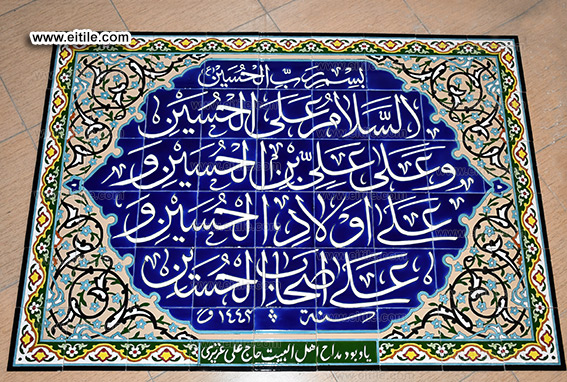 www.eitile.com
بسم رب الحسین (ع)
السلام علی الحسین
و علی علی بن الحسین و
علی اولاد الحسین و
علی اصحاب الحسین
سنة ۱۴۴۲ ق
یادبود مداح اهل البیت حاج علی عزیزی